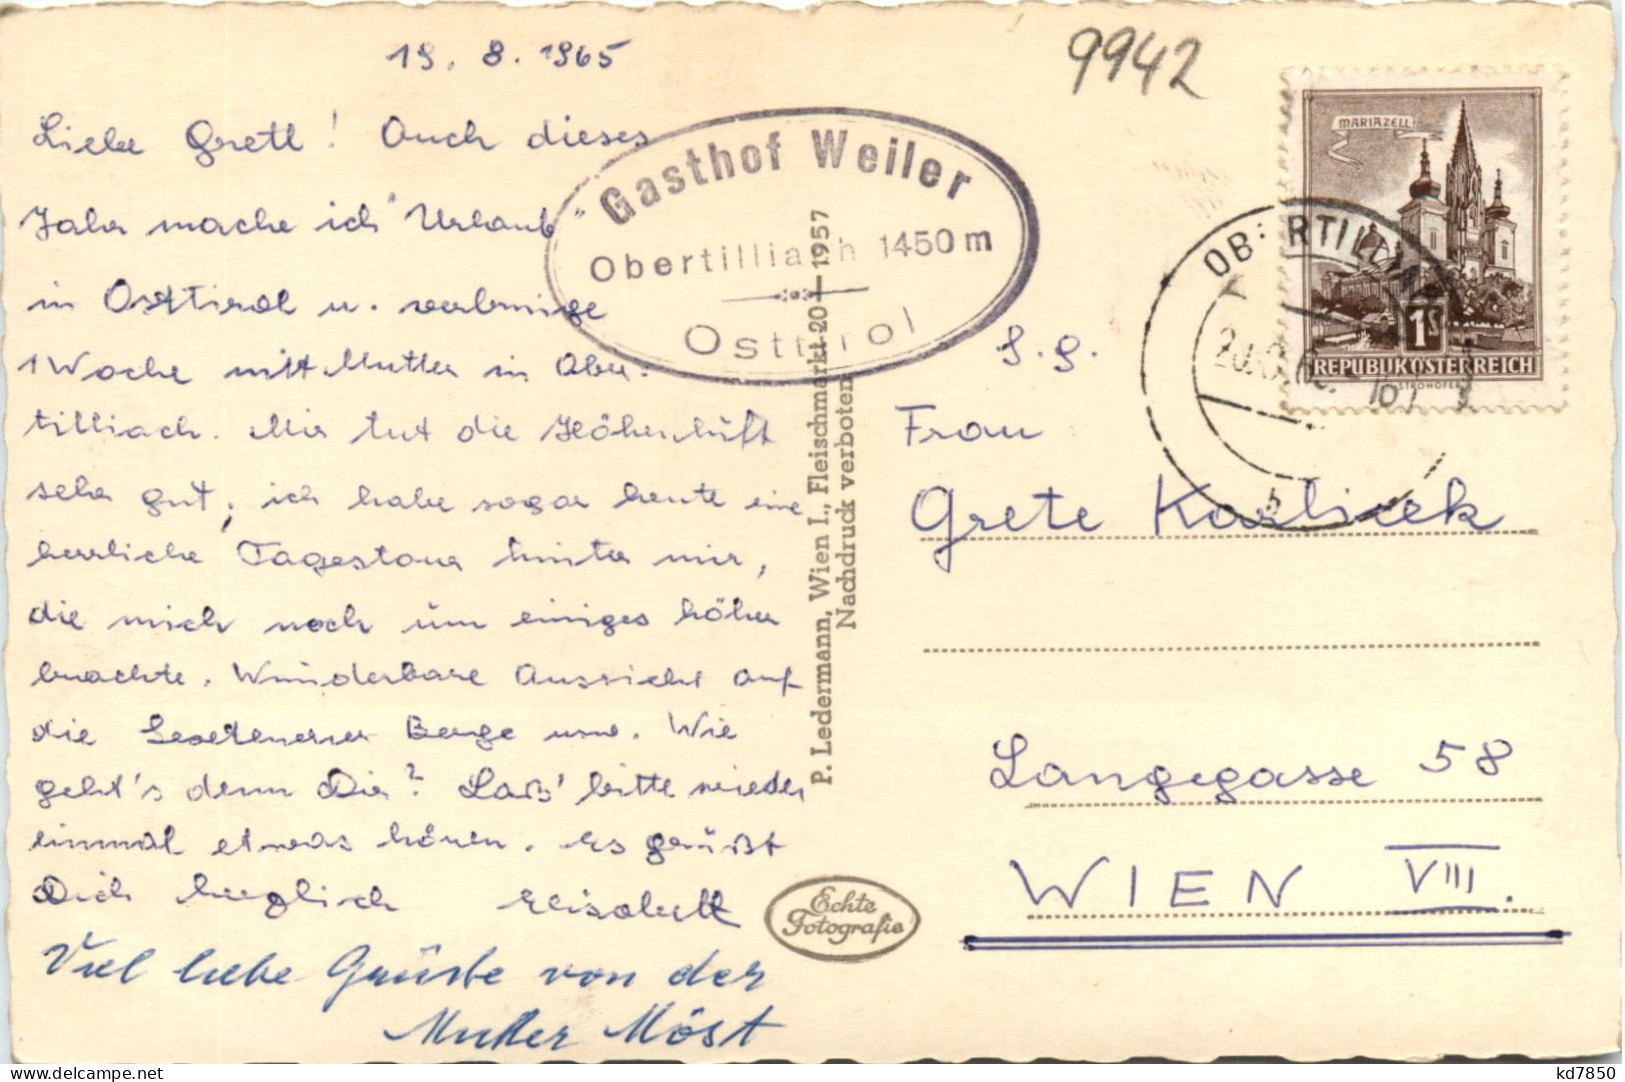 19. 8. 1965
Liebe Gretl! Auch dieses
Jahr mache ich "Urlaub"
in Osttirol u. verbringe
1 Woche mit Mutter in Ober-
tilliach. Mir tut die Höhenluft
sehr gut, ich habe sogar heute eine
herrliche Tagestour hinter mir,
die mich noch um einiges höher
brachte. Wunderbare Aussicht auf
die Sextener Berge usw. Wie
geht's denn Dir? Laß' bitte wieder
einmal etwas hören. Es grüßt
Dich herzlich Elisabeth
Viel liebe Grüße von der
Mutter Möst
Gasthof Weiler
Obertilliach 1450 m
Osttirol
P. Ledermann, Wien I., Fleischmarkt 20 — 1957
Nachdruck verboten
Echte
Fotografie
9942
MARIAZELL
1S
REPUBLIK ÖSTERREICH
OBERTILLIACH
S. g.
Frau
Grete Karlicek
Langegasse 58
WIEN VIII.
kd7850